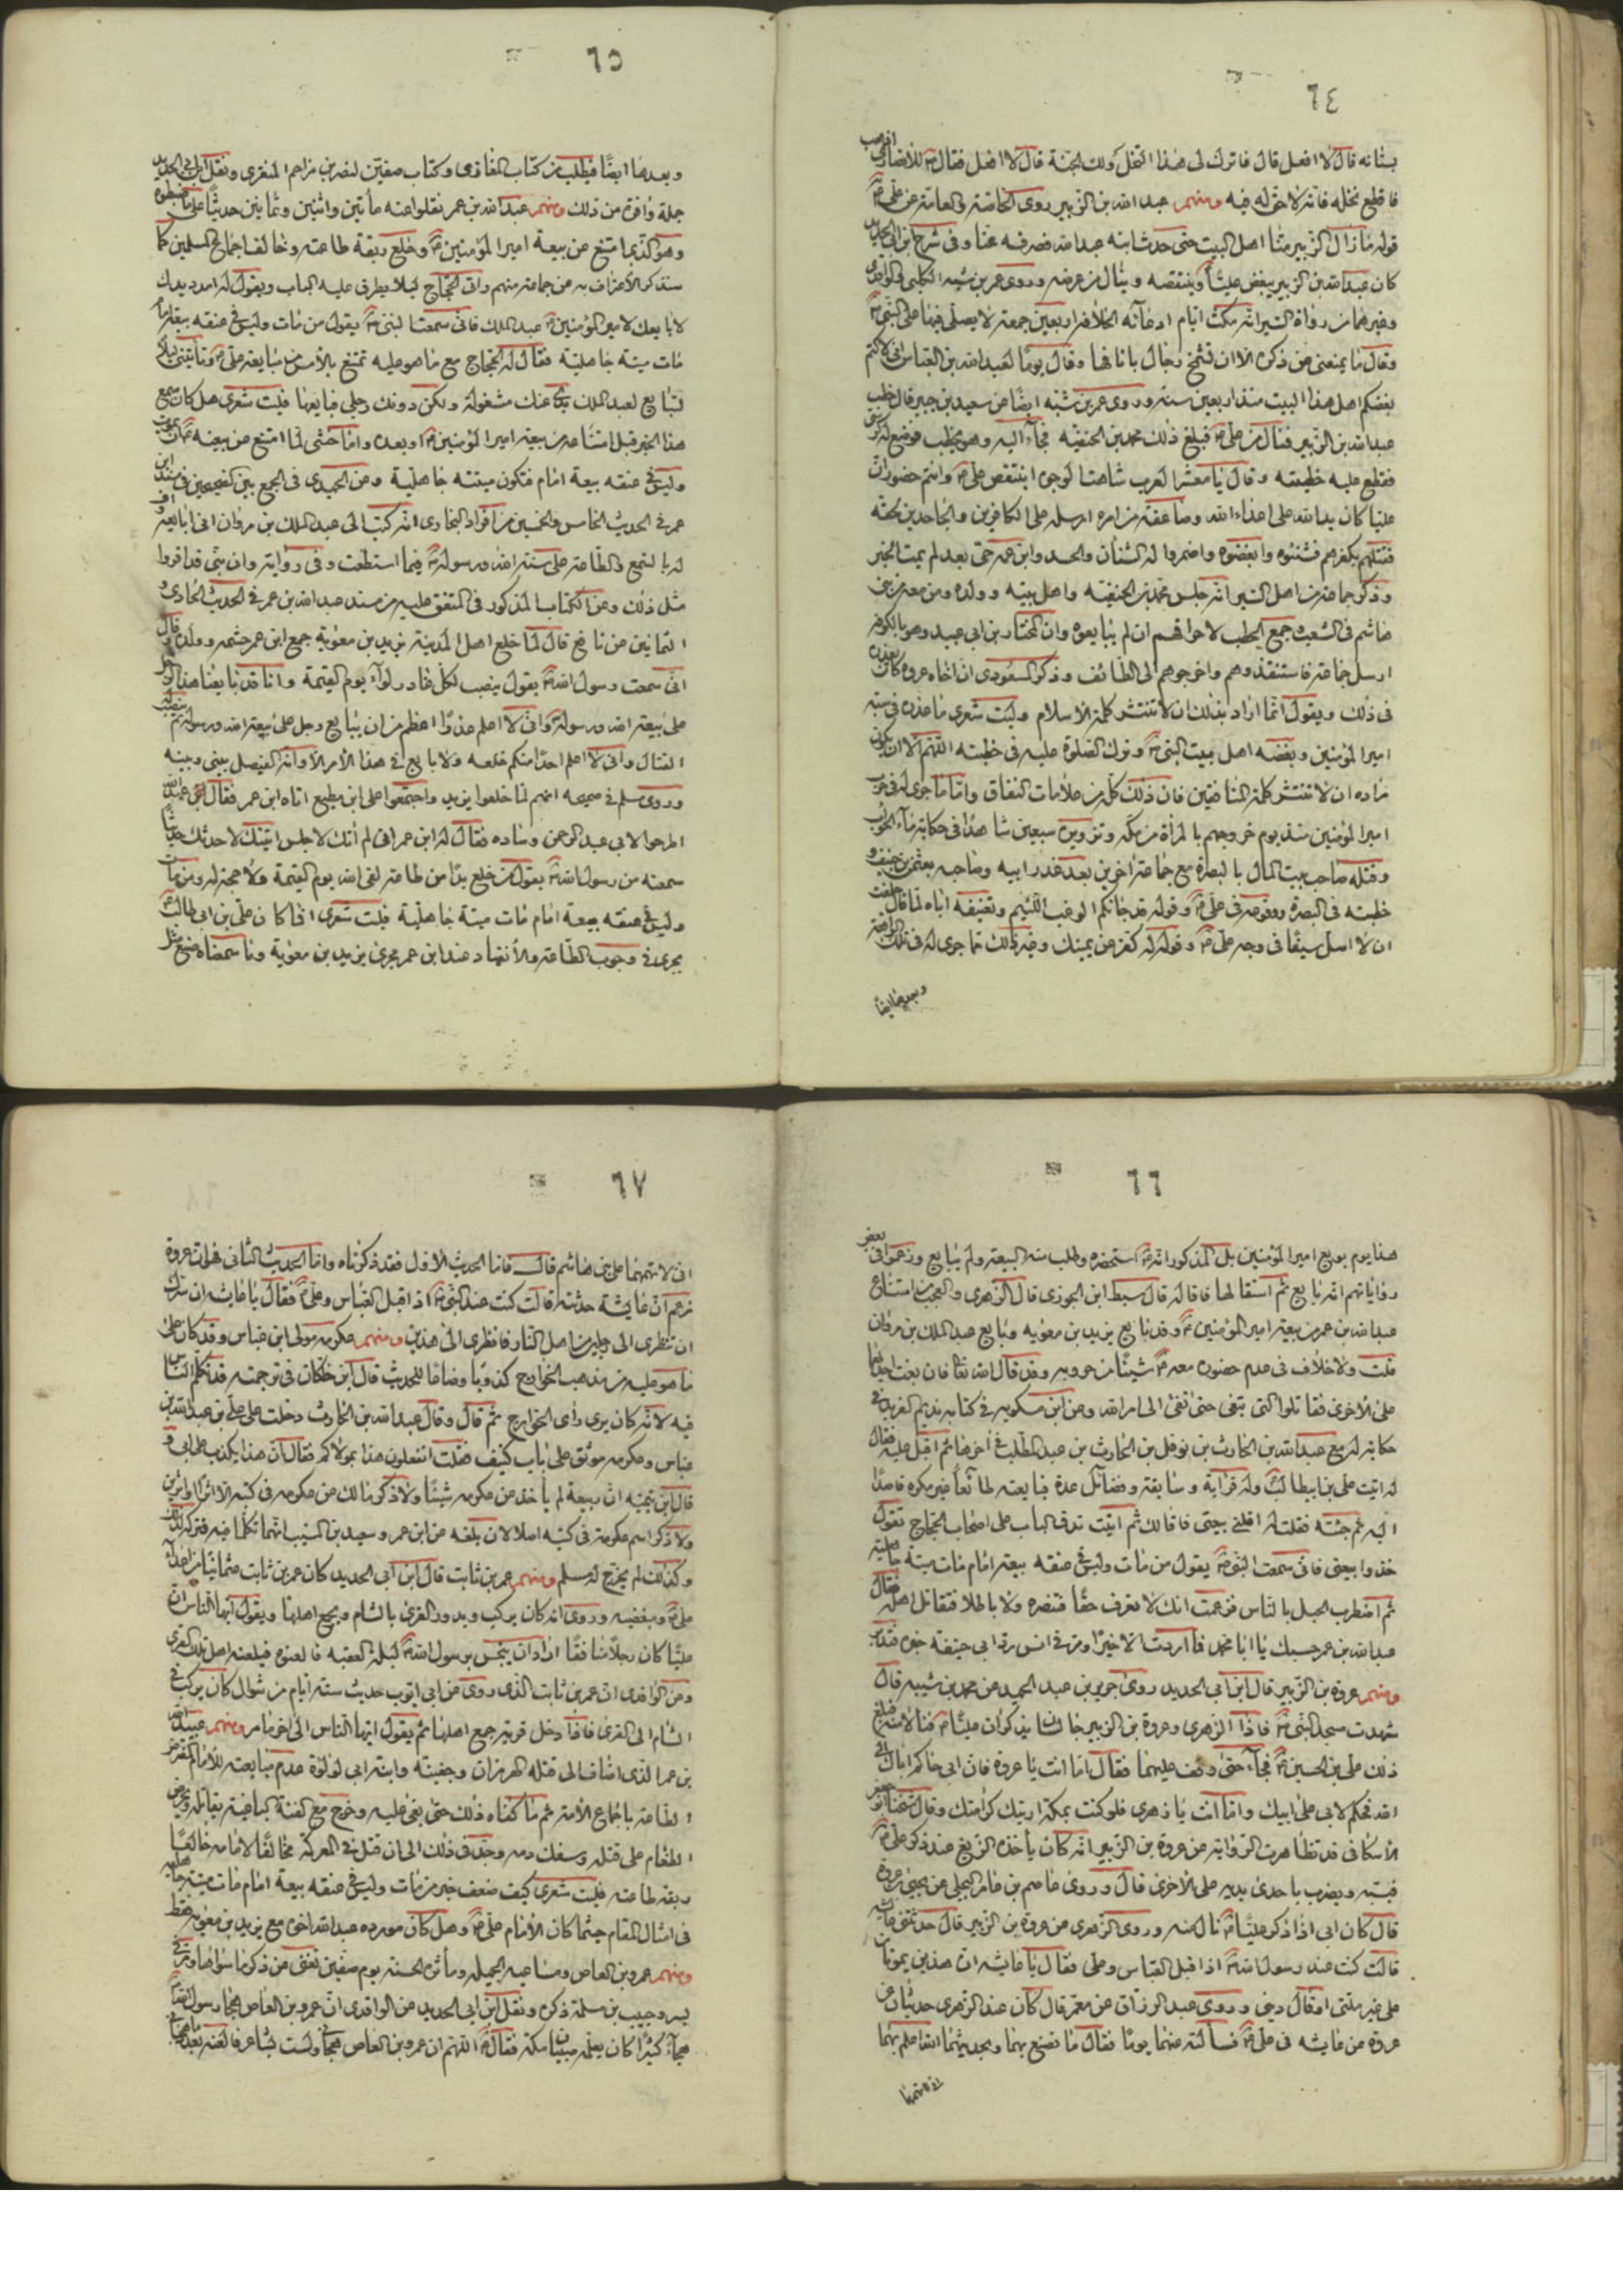 ٦٤
بستانه قال لا افعل قال فاترك لى هذا النخل ولك الجنة قال لا افعل فقال للأنصارى اذهب
فاقلع نخله فانه لا حق له فيه ومنهم عبد الله بن الزبير روى الخاصة والعامة عن على
قوله ما زال الزبير منا اهل البيت حتى حدث ابنه عبد الله فصرفه عنا وفى شرح ابن ابى الحديد
كان عبد الله بن الزبير يبغض عليا وينتقصه وينال من عرضه وروى عمر بن شبه والكلبى والواقدى
وغيرهما من رواة السير انه مكث ايام ادعائه الخلافة اربعين جمعة لا يصلى فيها على النبى
وقال ما يمنعنى من ذكره الا ان تشمخ رجال بانافها وقال يوما لعبد الله بن العباس انى لاكتم
بغضكم اهل هذا البيت منذ اربعين سنة وروى عمر بن شبه ايضا عن سعيد بن جبير قال خطب
عبد الله بن الزبير فنال من على فبلغ ذلك محمد بن الحنفية فجآء اليه وهو يخطب فوضع له كرسى
فقطع عليه خطبته وقال يا معشر العرب شاهت الوجوه اينتقص على وانتم حضور ان
عليا كان يد الله على اعداء الله وصاعقة من امره ارسله على الكافرين والجاحدين لحقه
فقتلهم بكفرهم فشنئوه وابغضوه واضمروا له الشنأن والحسد وابن عمه حى بعد لم يمت الخبر
وذكر جماعة من اهل السير انه حبس محمد بن الحنفية واهل بيته وولده ومن معه من بنى
هاشم فى الشعب وجمع الحطب لاحراقهم ان لم يبايعوه وان المختار بن ابى عبيد وهو بالكوفة
ارسل جماعة فاستنقذوهم واخرجوهم الى الطائف وذكر المسعودى ان اخاه عروة كان يعذره
فى ذلك ويقول انما اراد بذلك ان لا تنتشر كلمة الاسلام وليت شعرى ما عذره فى سبه
امير المؤمنين وبغضه اهل بيت النبى وترك الصلوة عليه فى خطبته اللهم الا ان يكون
مراده ان لا تنتشر كلمة المنافقين فان ذلك كله من علامات النفاق واما ما جرى له فى حرب
امير المؤمنين منذ يوم خروجهم بالمرأة من مكة وتزويره سبعين شاهدا فى حكاية مآء الحوأب
وقتله صاحب بيت المال بالبصرة مع جماعة اخرين بعد غدر ابيه وصاحبه بعثمن بن حنيف و
خطبته فى البصرة ووقوعه فى على وقوله قد جائكم الوغب اللئيم وتعنيفه اباه لما قال حلفت
ان لا اسل سيفا فى وجه على وقوله له كفر عن يمينك وغير ذلك مما جرى له فى تلك الواقعة
وبعدها ايضا
٦٥
وبعدها ايضا فيطلب من كتاب المغازى وكتاب صفين لنصر بن مزاحم المنقرى ونقل ابن ابى الحديد
جملة وافرة من ذلك ومنهم عبد الله بن عمر نقلوا عنه مأتين واثنين وثمانين حديثا على ما ضبطوه
وهو الذى امتنع عن بيعة امير المؤمنين وخلع ربقة طاعته وخالف اجماع المسلمين كما
سنذكر الاعتراف به من جماعة منهم واتى الحجاج ليلا يطرق عليه الباب ويقول له امدد يدك
لابايعك لامير المؤمنين عبد الملك فانى سمعت النبى يقول من مات وليس فى عنقه بيعة امام
مات ميتة جاهلية فقال له الحجاج مع ما هو عليه تمتنع بالأمس من مبايعة على وتأتينى ليلا
لتبايع لعبد الملك يدى عنك مشغولة ولكن دونك رجلى فبايعها فليت شعرى هل كان سمع
هذا الخبر قبل امتناعه من بيعة امير المؤمنين او بعده واما خشى لما امتنع من بيعته ان يموت
وليس فى عنقه بيعة امام فتكون ميتته جاهلية وعن الحميدى فى الجمع بين الصحيحين فى مسند ابن
عمر فى الحديث الخامس والخمسين من افراد البخارى انه كتب الى عبد الملك بن مروان انى ابايعه واقر
له بالسمع والطاعة على سنة الله ورسوله فيما استطعت وفى رواية وان بنى قد اقروا
مثل ذلك وعن الكتاب المذكور فى المتفق عليه من مسند عبد الله بن عمر فى الحديث الحادى و
الثمانين عن نافع قال لما خلع اهل المدينة يزيد بن معوية جمع ابن عمر حشمه وولده وقال
انى سمعت رسول الله يقول ينصب لكل غادر لوآء يوم القيمة وانا قد بايعنا هذا الرجل
على بيعة الله ورسوله وانى لا اعلم غدرا اعظم من ان يبايع رجل على بيعة الله ورسوله ثم ينصب له
القتال وانى لا اعلم احدا منكم خلعه ولا بايع فى هذا الأمر الا وانه الفيصل بينى وبينه
وروى مسلم فى صحيحه انهم لما خلعوا يزيد واجتمعوا على ابن مطيع اتاه ابن عمر فقال عبد الله
اطرحوا لابى عبد الرحمن وساده فقال له ابن عمر انى لم اتك لاجلس اتيتك لاحدثك حديثا
سمعته من رسول الله يقول من خلع يدا من طاعة لقى الله يوم القيمة ولا حجة له ومن مات
وليس فى عنقه بيعة امام مات ميتة جاهلية فليت شعرى اما كان على بن ابى طالب
يجرى فى وجوب الطاعة والأنقياد عند ابن عمر مجرى يزيد بن معوية وما سمعناه صنع مثل
٦٦
هذا يوم بويع امير المؤمنين بل المذكور انه استحضره وطلب منه البيعة ولم يبايع وزعموا فى بعض
رواياتهم انه بايع ثم استقالها فاقاله قال سبط ابن الجوزى قال الزهرى والعجب من امتناع
عبد الله بن عمر من بيعة امير المؤمنين وقد بايع يزيد بن معويه وبايع عبد الملك بن مروان
قلت ولا خلاف فى عدم حضوره معه شيئا من حروبه وقد قال الله تعا فان بغت احديهما
على الاخرى فقاتلوا التى تبغى حتى تفئ الى امر الله وعن ابن مسكويه فى كتابه نديم الفريد فى
حكاية له مع عبد الله بن الحارث بن نوفل بن الحارث بن عبد المطلب فى اخرها ثم اقبل عليه فقال
له اتيت على بن ابيطالب وله قرابة وسابقة وفضائل عدة فبايعته طائعا غير مكره قاصدا
اليه ثم جئته فقلت له اقلنى بيعتى فاقالك ثم اتيت تدق الباب على اصحاب الحجاج تقول
خذوا بيعتى فانى سمعت النبى يقول من مات وليس فى عنقه بيعة امام مات ميتة جاهلية
ثم اضطرب الحبل بالناس فزعمت انك لا تعرف حقا فتنصره ولا باطلا فتقاتل اهله فقال
عبد الله بن عمر حسبك يا ابا محمد فما اردت الا خيرا ومر فى انس وابى حنيفة
ومنهم عروة بن الزبير قال ابن ابى الحديد روى جرير بن عبد الحميد عن محمد بن شيبه قال
شهدت مسجد النبى فاذا الزهرى وعروة بن الزبير جالسان يذكران عليا فنالا منه فبلغ
ذلك على بن الحسين فجآء حتى وقف عليهما فقال اما انت يا عروة فان ابى حاكم اباك الى
الله فحكم لابى على ابيك واما انت يا زهرى فلو كنت بمكة اريتك كرامتك وقال
الأسكافى قد تظاهرت الرواية عن عروة بن الزبير انه كان يأخذه الزمع عند ذكر على
فيسبه ويضرب باحدى يديه على الأخرى قال وروى عاصم بن عامر البجلى عن يحيى بن عروة
قال كان ابى اذا ذكر عليا نال منه وروى الزهرى عن عروة بن الزبير قال حدثتنى عايشه
قالت كنت عند رسول الله اذا اقبل العباس وعلى فقال يا عايشه ان هذين يموتان
على غير ملتى او قال دينى وروى عبد الرزاق عن معمر قال كان عند الزهرى حديثان عن
عروة عن عايشه فى على فسألته عنهما يوما فقال ما تصنع بهما وبحديثهما الله اعلم بهما
انى لاتهمهما
٦٧
انى لاتهمهما على بنى هاشم قال فاما الحديث الأول فقد ذكرناه واما الحديث الثانى فهو ان عروة
زعم ان عايشة حدثته قالت كنت عند النبى اذ اقبل العباس وعلى فقال يا عايشه ان سرك
ان تنظرى الى رجلين من اهل النار فانظرى الى هذين ومنهم عكرمه مولى ابن عباس وقد كان على
ما هو عليه من مذهب الخوارج كذوبا وضاعا للحديث قال ابن خلكان فى ترجمته قد تكلم الناس
فيه لانه كان يرى رأى الخوارج ثم قال وقال عبد الله بن الحارث دخلت على على بن عبد الله بن
عباس وعكرمه موثق على باب كنيف فقلت اتفعلون هذا بمولاكم فقال ان هذا يكذب على ابى و
قال ابن ان ربيعة لم يأخذ عن عكرمه شيئا ولا ذكر مالك عن عكرمه فى كتبه الا اثرا او اثرين
ولا ذكر اسم عكرمة فى كتبه اصلا لان بلغه عن ابن عمر وسعيد بن المسيب انهما تكلما فيه فتركه لذلك
وكذلك لم يخرج له مسلم ومنهم عمر بن ثابت قال ابن ابى الحديد كان عمر بن ثابت عثمانيا من اعداء
على ومبغضيه وروى انه كان يركب ويدور القرى بالشام ويجمع اهلها ويقول ايها الناس ان
عليا كان رجلا منافقا اراد ان ينخس برسول الله ليلة العقبه فالعنوه فيلعنه اهل تلك القرى
وعن الواقدى ان عمر بن ثابت الذى روى عن ابى ايوب حديث ستة ايام من شوال كان يركب فى
الشام الى القرى فاذا دخل قرية جمع اهلها ثم يقول ايها الناس الى اخر ما مر ومنهم عبيد الله
بن عمر الذى اضاف الى قتله الهرمزان وجفينة وابنة ابى لؤلؤة عدم مبايعته للأمام المفترض
الطاعة باجماع الأمة ثم ما كفاه ذلك حتى بغى عليه وخرج مع الفئة الباغية يقاتله ويحرض
الطغام على قتله وسفك دمه وجد فى ذلك الى ان قتل فى المعركة مخالفا لامامه خالعا
ربقة طاعته فليت شعرى كيف ضعف خبر من مات وليس فى عنقه بيعة امام مات ميتة جاهلية
فى امثال المقام حيثما كان الأمام على وهل كان مورده عبد الله اخى مع يزيد بن معوية فقط
ومنهم عمرو بن العاص ومناصبه الجميلة ومأثره الحسنة يوم صفين تغنى عن ذكر ما سواها
ونقل ابن ابى الحديد عن الواقدى ان عمرو بن العاص هجا رسول الله
هجآء كثيرا كان يعلمه صبيان مكة فقال اللهم ان عمرو بن العاص هجانى ولست بشاعر فالعنه بعدد ما هجانى